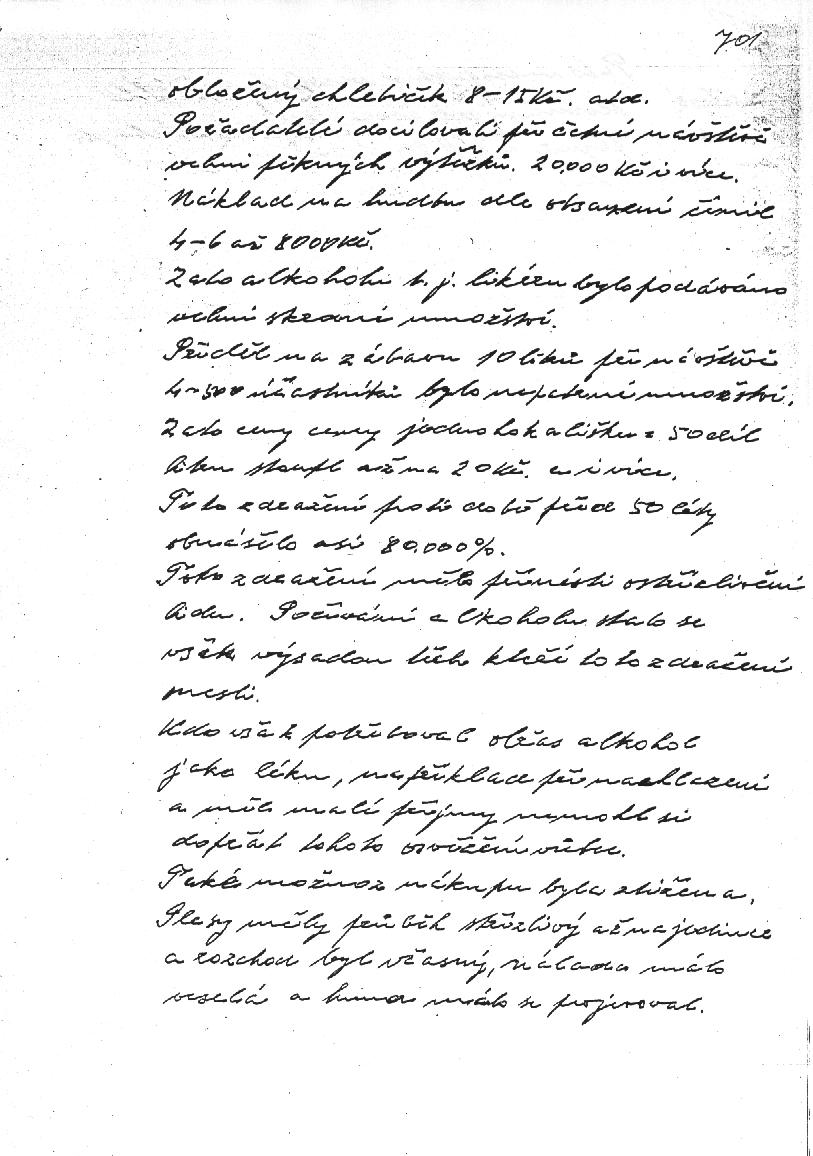 701
obložený chlebíček 8-15Kč. atd.
Pořadatelé docilovali při četné návštěvě
velmi pěkných výtěžků. 20.000 Kč i více.
Náklad na hudbu dle obsazení činil
4-6 až 8000Kč.
Zato alkoholu t. j. likéru bylo podáváno
velmi skrovné množství.
Příděl na zábavu 10 litrů při návštěvě
4-500 účastníků bylo nepatrné množství.
Zato ceny ceny jednoho kalíšku = 50 díl
litru stoupl až na 20Kč. a i více.
Toto zdražení proti době před 50 léty
obnášelo asi 80.000%.
Toto zdražení mělo přinésti ostřízlivění
lidu. Požívání alkoholu stalo se
však výsadou těch kteří toto zdražení
nesli.
Kdo však potřeboval občas alkohol
jako léku, například při nachlazení
a měl malé příjmy nemohl si
dopřát tohoto osvěžení vůbec.
Také možnost nákupu byla ztížena.
Plesy měly průběh střízlivý až na jedince
a rozchod byl včasný, nálada málo
veselá a humor málo se projevoval.